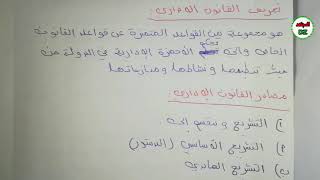 تعريف القانون الإداري:
هو مجموعة من القواعد المتميزة عن قواعد القانونية
الخاص والتي تحكم الأجهزة الإدارية في الدولة من
حيث تنظيمها ونشاطها ومنازعاتها
مصادر القانون الإداري:
1) التشريع وينقسم إلى:
أ) التشريع الأساسي (الدستور)
ب) التشريع العادي